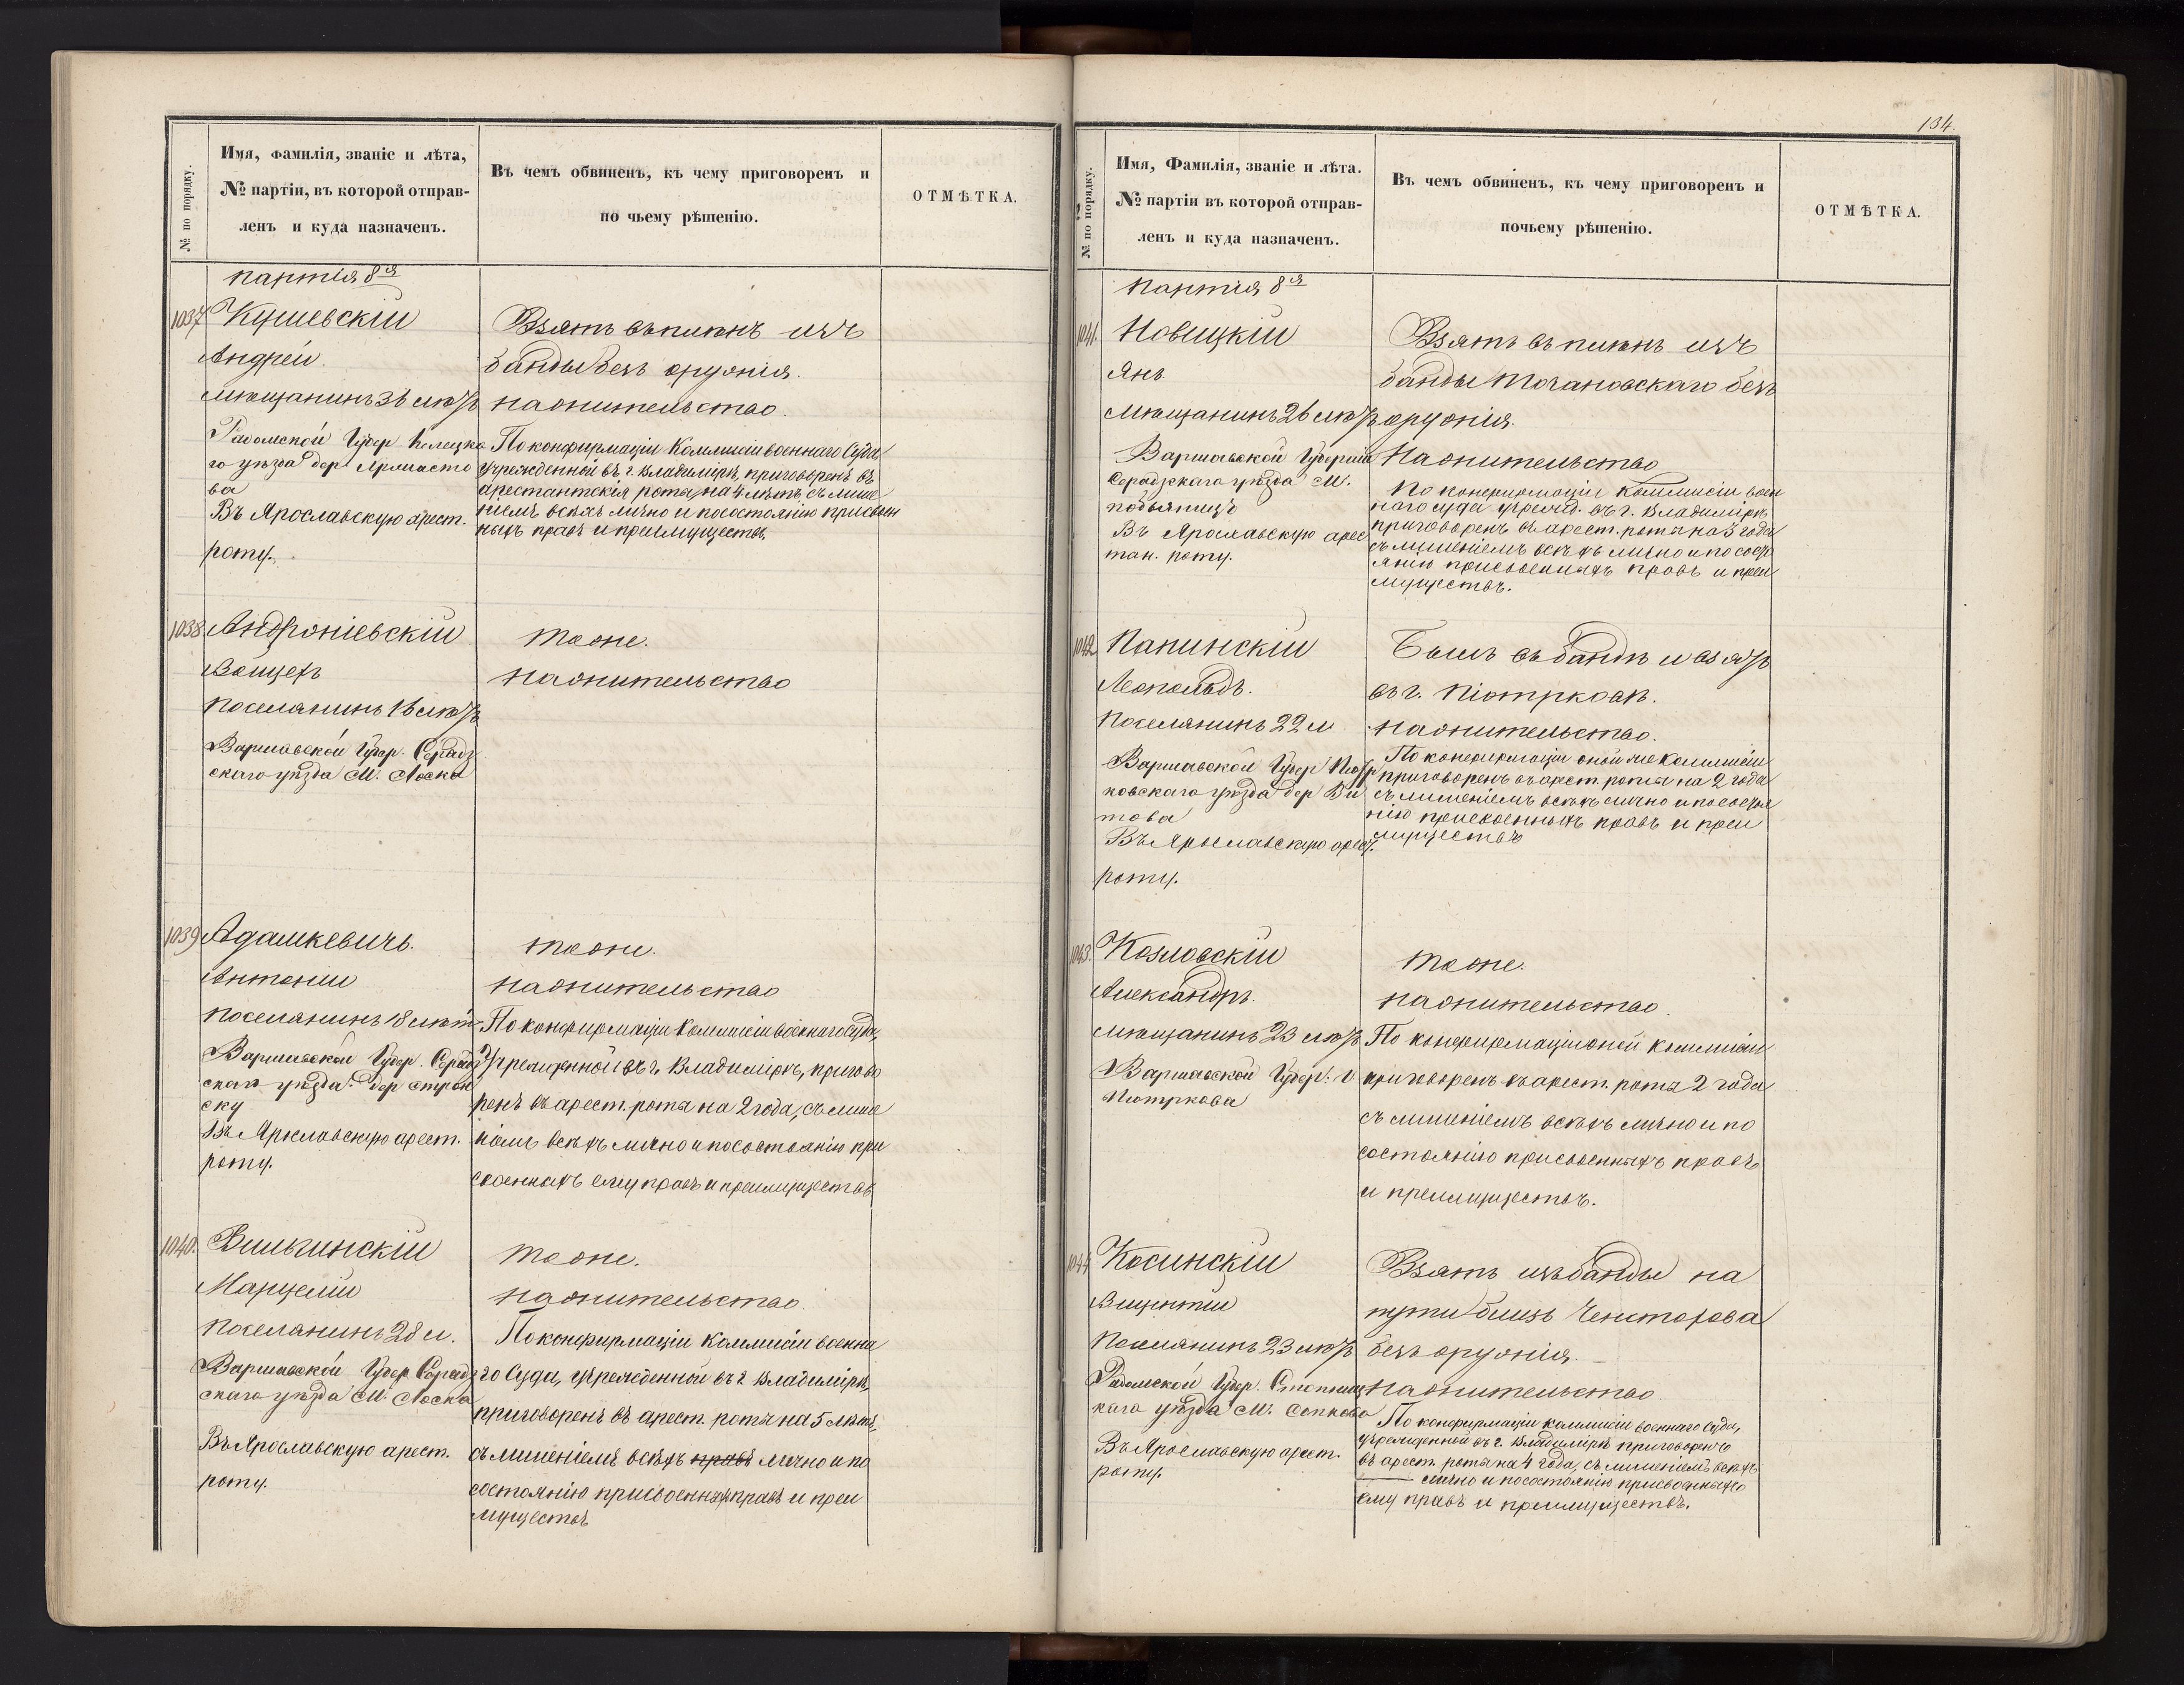 № по порядку.
Имя, фамилія, званіе и лѣта,
№ партіи, въ которой отправ-
ленъ и куда назначенъ.
Въ чемъ обвиненъ, къ чему приговоренъ и
по чьему рѣшенію.
ОТМѢТКА.
партія 8я
1037
Кушевскій
Андрей.
мѣщанинъ 36 лѣтъ
Радомской Губер Келецка
го уѣзда дер
ва
Въ Ярославскую арест.
роту.
Взятъ въ плѣнъ изъ
банды безъ оружія.
на жительство.
По конфирмаціи Коммисіи военнаго Суда
учрежденной въ г. Владимірѣ, приговоренъ въ
арестантскія роты на 4 лѣтъ, съ лише
ніемъ всѣхъ лично и по состоянію присвоен
ныхъ правъ и преимуществъ.
1038
Андроніевскій
Войцехъ
поселянинъ 16 лѣтъ
Варшавской Губер. Серадз
скаго уѣзда М. Ласка
тоже.
на жительство
1039
Адамкевичъ.
Антоній
поселянинъ 18 лѣт
Варшавской Губер. Серадз
скаго уѣзда дер строн
ску
Въ Ярославскую арест.
роту.
тоже.
на жительство
По конфирмаціи Коммисіи военнаго Суда,
Учрежденной въ г. Владимірѣ, пригово
ренъ въ арест. роты на 2 года, съ лише
ніемъ всѣхъ лично и по состоянію при
своенныхъ ему правъ и преимуществъ
1040.
Вильчинскій
Марцелій
поселянинъ 28 л.
Варшавской Губер. Серадз
скаго уѣзда М. Ласка
Въ Ярославскую арест.
роту.
тоже.
на жительство.
По конфирмаціи Коммисіи военна
го Суда, учрежденной въ г. Владимірѣ,
приговоренъ въ арест. роты на 5 лѣтъ,
съ лишеніемъ всѣхъ правъ лично и по
состоянію присвоенныхъ правъ и преи
муществъ
134.
№ по порядку.
Имя, Фамилія, званіе и лѣта.
№ партіи въ которой отправ-
ленъ и куда назначенъ.
Въ чемъ обвиненъ, къ чему приговоренъ и
почьему рѣшенію.
ОТМѢТКА.
партія 8я
1041.
Новицкій
Янъ.
мѣщанинъ 26 лѣтъ
Варшавской Губерніи
Серадзскаго уѣзда М.
Въ Ярославскую арес
тан. роту.
Взятъ въ плѣнъ изъ
банды Тачановскаго безъ
оружія.
На жительство
По конфирмаціи Коммисіи воен
наго суда учрежд. въ г. Владимірѣ
приговоренъ въ арест. роты на 3 года
съ лишеніемъ всѣхъ лично и по состо
янію присвоенныхъ правъ и преи
муществъ.
1042
Папинскій
Леопольдъ.
поселянинъ 22 л
Варшавской Губер Піотр
ковскаго уѣзда дер Ви
това
Въ Ярославскую арест.
роту.
Былъ въ бандѣ и взятъ
въ г. Піотрковѣ.
на жительство.
По конфирмаціи оной же Коммисіи
приговоренъ въ арест. роты на 2 года
съ лишеніемъ всѣхъ лично и по состоя
нію присвоенныхъ правъ и преи
муществъ
1043.
Козловскій
Александръ.
мѣщанинъ 23 лѣтъ
Варшавской Губер. г.
Піотркова
тоже.
на жительство.
По конфирмаціи оной коммисіи
приговоренъ въ арест. роты 2 года
съ лишеніемъ всѣхъ лично и по
состоянію присвоенныхъ правъ
и преимуществъ.
1044
Косинскій
Вицентій
поселянинъ 23 лѣтъ
Радомской Губер. Стопниц
каго уѣзда М.
Въ Ярославскую арест.
роту.
Взятъ изъ банды на
пути близъ Ченстохова
безъ оружія.
на жительство.
По конфирмаціи коммисіи военнаго суда,
учрежденной въ г. Владимірѣ приговоренъ
въ арест. роты на 4 года, съ лишеніемъ всѣхъ
лично и по состоянію присвоенныхъ
ему правъ и преимуществъ.